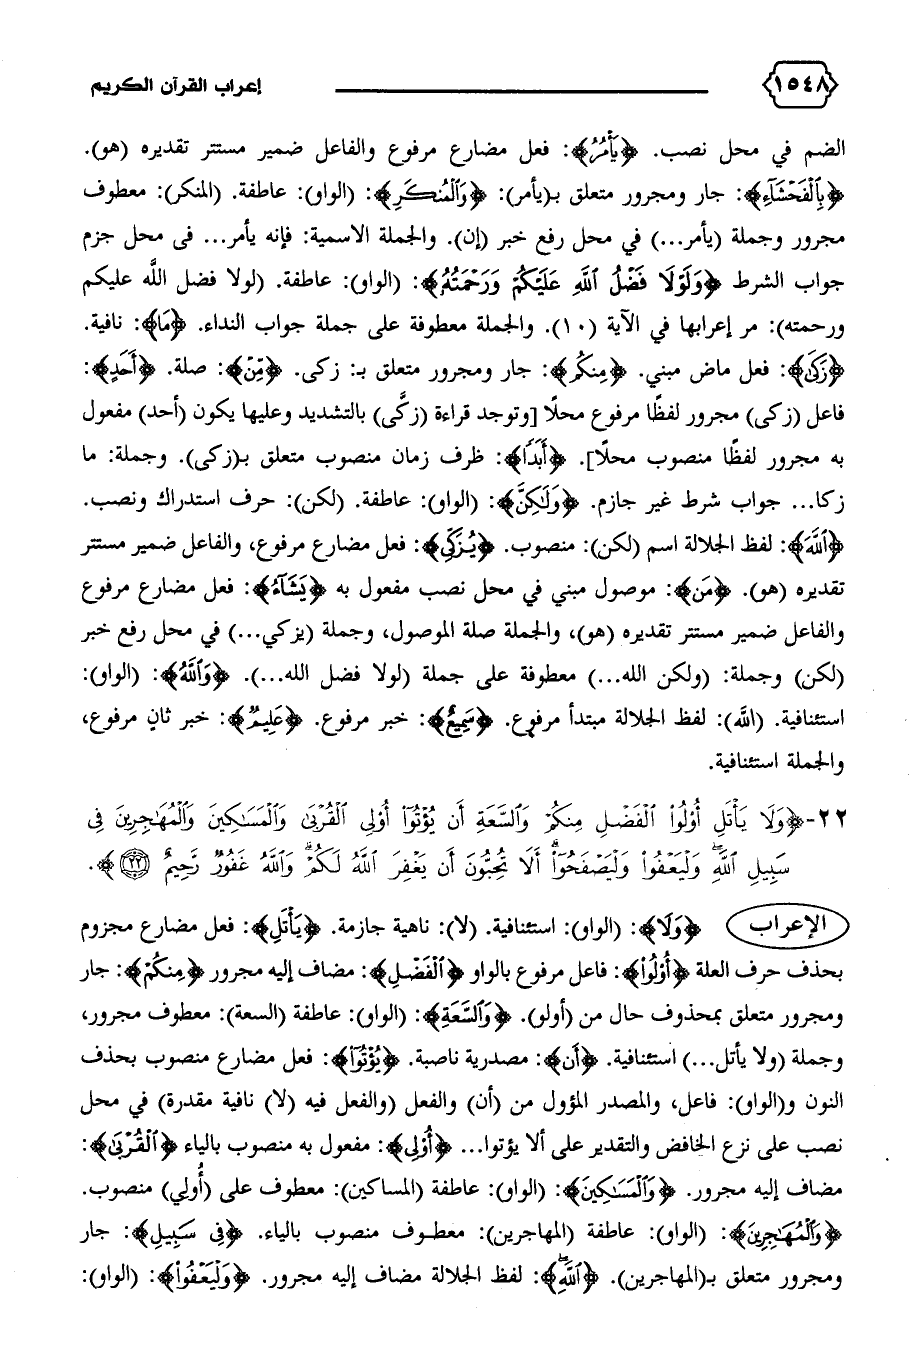 ١٥٤٨ إعراب القرآن الكريم
الضم في محل نصب. ﴿يَأْمُرُ﴾: فعل مضارع مرفوع والفاعل ضمير مستتر تقديره (هو).
﴿بِٱلْفَحْشَآءِ﴾: جار ومجرور متعلق بـ(يأمر): ﴿وَٱلْمُنكَرِ﴾: (الواو): عاطفة. (المنكر): معطوف
مجرور وجملة (يأمر...) في محل رفع خبر (إن). والجملة الاسمية: فإنه يأمر... فى محل جزم
جواب الشرط ﴿وَلَوْلَا فَضْلُ ٱللَّهِ عَلَيْكُمْ وَرَحْمَتُهُۥ﴾: (الواو): عاطفة. (لولا فضل اللَّه عليكم
ورحمته): مر إعرابها في الآية (١٠). والجملة معطوفة على جملة جواب النداء. ﴿مَا﴾: نافية.
﴿زَكَىٰ﴾: فعل ماض مبني. ﴿مِنكُم﴾: جار ومجرور متعلق بـ: زكى. ﴿مِّنْ﴾: صلة. ﴿أَحَدٍ﴾:
فاعل (زكى) مجرور لفظًا مرفوع محلًا [وتوجد قراءة (زكَّى) بالتشديد وعليها يكون (أحد) مفعول
به مجرور لفظًا منصوب محلًا]. ﴿أَبَدًا﴾: ظرف زمان منصوب متعلق بـ(زكى). وجملة: ما
زكا... جواب شرط غير جازم. ﴿وَلَٰكِنَّ﴾: (الواو): عاطفة. (لكن): حرف استدراك ونصب.
﴿ٱللَّهَ﴾: لفظ الجلالة اسم (لكن): منصوب. ﴿يُزَكِّى﴾: فعل مضارع مرفوع، والفاعل ضمير مستتر
تقديره (هو). ﴿مَن﴾: موصول مبني في محل نصب مفعول به ﴿يَشَآءُ﴾: فعل مضارع مرفوع
والفاعل ضمير مستتر تقديره (هو)، والجملة صلة الموصول، وجملة (يزكي...) في محل رفع خبر
(لكن) وجملة: (ولكن الله...) معطوفة على جملة (لولا فضل الله...). ﴿وَٱللَّهُ﴾: (الواو):
استئنافية. (الله): لفظ الجلالة مبتدأ مرفوع. ﴿سَمِيعٌ﴾: خبر مرفوع. ﴿عَلِيمٌ﴾: خبر ثانٍ مرفوع،
والجملة استئنافية.
٢٢-﴿وَلَا يَأْتَلِ أُو۟لُوا۟ ٱلْفَضْلِ مِنكُمْ وَٱلسَّعَةِ أَن يُؤْتُوٓا۟ أُو۟لِى ٱلْقُرْبَىٰ وَٱلْمَسَٰكِينَ وَٱلْمُهَٰجِرِينَ فِى
سَبِيلِ ٱللَّهِ ۖ وَلْيَعْفُوا۟ وَلْيَصْفَحُوٓا۟ ۗ أَلَا تُحِبُّونَ أَن يَغْفِرَ ٱللَّهُ لَكُمْ ۗ وَٱللَّهُ غَفُورٌ رَّحِيمٌ ۝٢٢﴾.
الإعراب ﴿وَلَا﴾: (الواو): استئنافية. (لا): ناهية جازمة. ﴿يَأْتَلِ﴾: فعل مضارع مجزوم
بحذف حرف العلة ﴿أُو۟لُوا۟﴾: فاعل مرفوع بالواو ﴿ٱلْفَضْلِ﴾: مضاف إليه مجرور ﴿مِنكُمْ﴾: جار
ومجرور متعلق بمحذوف حال من (أولو). ﴿وَٱلسَّعَةِ﴾: (الواو): عاطفة (السعة): معطوف مجرور،
وجملة (ولا يأتل...) استئنافية. ﴿أَن﴾: مصدرية ناصبة. ﴿يُؤْتُوٓا۟﴾: فعل مضارع منصوب بحذف
النون و(الواو): فاعل، والمصدر المؤول من (أن) والفعل (والفعل فيه (لا) نافية مقدرة) في محل
نصب على نزع الخافض والتقدير على ألا يؤتوا... ﴿أُو۟لِى﴾: مفعول به منصوب بالياء ﴿ٱلْقُرْبَىٰ﴾:
مضاف إليه مجرور. ﴿وَٱلْمَسَٰكِينَ﴾: (الواو): عاطفة (المساكين): معطوف على (أُولي) منصوب.
﴿وَٱلْمُهَٰجِرِينَ﴾: (الواو): عاطفة (المهاجرين): معطوف منصوب بالياء. ﴿فِى سَبِيلِ﴾: جار
ومجرور متعلق بـ(المهاجرين). ﴿ٱللَّهِ ۖ﴾: لفظ الجلالة مضاف إليه مجرور. ﴿وَلْيَعْفُوا۟﴾: (الواو):